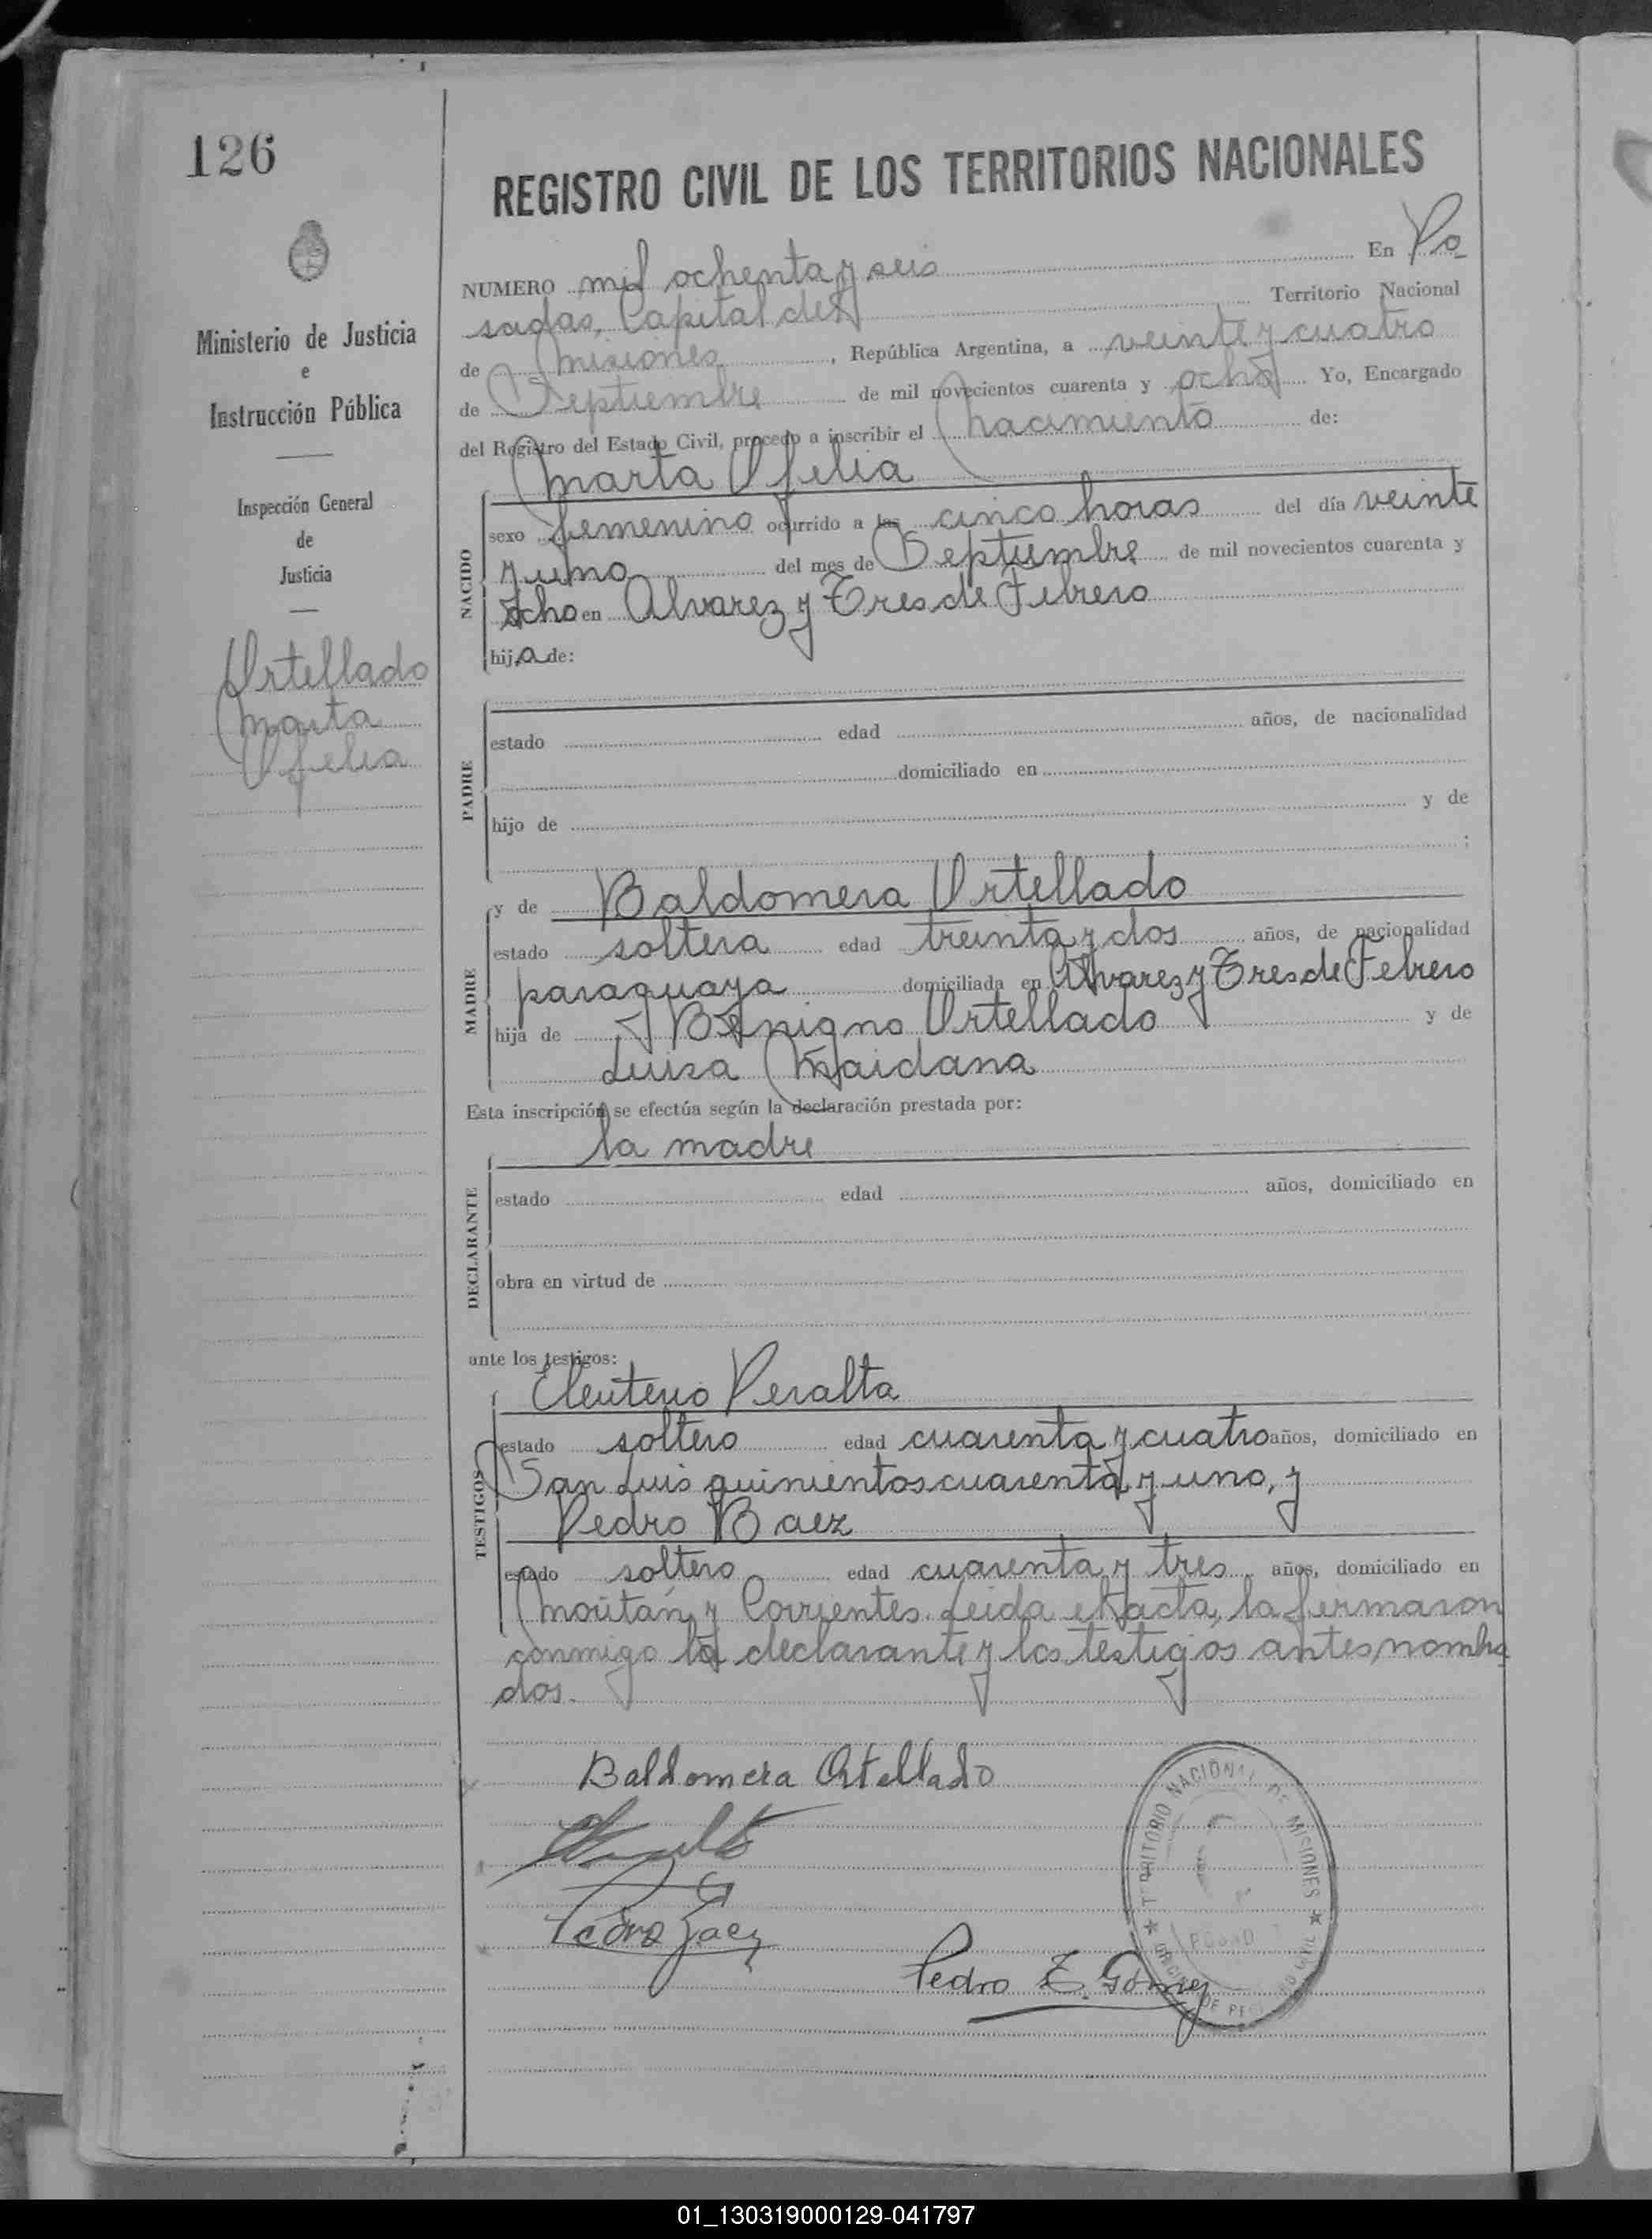 126
REGISTRO CIVIL DE LOS TERRITORIOS NACIONALES
NUMERO mil ochenta y seis En Po
sadas, Capital del Territorio Nacional
de Misiones, República Argentina, a veinte y cuatro
de Septiembre de mil novecientos cuarenta y ocho Yo, Encargado
del Registro del Estado Civil, procedo a inscribir el nacimiento de:
Marta Ofelia
Ministerio de Justicia
e
Instrucción Pública
Inspección General
de
Justicia
Ortellado
Marta
Ofelia
NACIDO
sexo femenino ocurrido a las cinco horas del día veinte
y uno del mes de Septiembre de mil novecientos cuarenta y
ocho en Alvarez y Tres de Febrero
hija de:
PADRE
estado edad años, de nacionalidad
domiciliado en
hijo de y de
;
MADRE
y de Baldomera Ortellado
estado soltera edad treinta y dos años, de nacionalidad
paraguaya domiciliada en Alvarez y Tres de Febrero
hija de Benigno Ortellado y de
Luisa Maidana
Esta inscripción se efectúa según la declaración prestada por:
la madre
DECLARANTE
estado edad años, domiciliado en
obra en virtud de
ante los testigos:
TESTIGOS
Eleuterio Peralta
estado soltero edad cuarenta y cuatro años, domiciliado en
San Luis quinientos cuarenta y uno, y
Pedro Baez
estado soltero edad cuarenta y tres años, domiciliado en
y Corrientes. Leida el acta, la firmaron
conmigo la declarante y los testigos antes nombra
dos.
Baldomera Ortellado
Pedro Baez
Pedro E. Gómez
TERRITORIO NACIONAL DE MISIONES
01_130319000129-041797